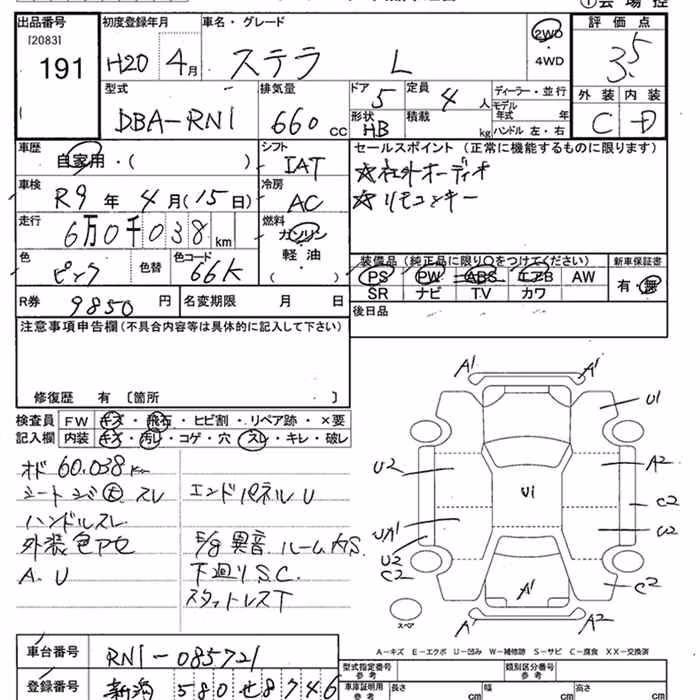 ① 会 場 控
出品番号 初度登録年月 車名・グレード 評 価 点
[2083] 191
H20 4月 ステラ L 2WD 3.5
・4WD
型式 排気量 ドア 5 定員 4人 ディーラー・並行 外 装 内 装
モデル年式 年
DBA-RN1 660 CC 形状 HB 積載 kg ハンドル 左・右 C D
車歴 シフト セールスポイント (正常に機能するものに限ります)
自家用・( ) IAT ☆社外オーディオ
車検 冷房 ☆リモコンキー
R9 年 4 月(15日) AC
走行 燃料
6万0千038km ガソリン
軽 油
( )
色 色替 色コード 装備品 (純正品に限り○をつけてください) 新車保証書
ピンク 66K PS PW ABS エアB AW 有・無
SR ナビ TV カワ
R券 9850 円 名変期限 月 日 後日品
注意事項申告欄(不具合内容等は具体的に記入して下さい)
修復歴 有 〔箇所 〕
検査員 FW キズ・飛石・ヒビ割・リペア跡・×要
記入欄 内装 キズ・汚れ・コゲ・穴・スレ・キレ・破レ
オド 60.038km
シート シミ 大 スレ エンドパネル U
ハンドルスレ
外装色アセ E/g 異音 ルームキズ.
A.U 下廻りS.C.
スタットレスT
A1 A1
U1
U2 A2
U1
C2
UA1 U2
U2
C2 C2
A1
A1 A2
スペア
A-キズ E-エクボ U-凹み W-補修跡 S-サビ C-腐食 XX-交換済
車台番号 RN1-085721 型式指定番号 参考 類別区分番号 参考
登録番号 新潟 580 せ 8746 車庫証明用 参考 長さ cm 幅 cm 高さ cm